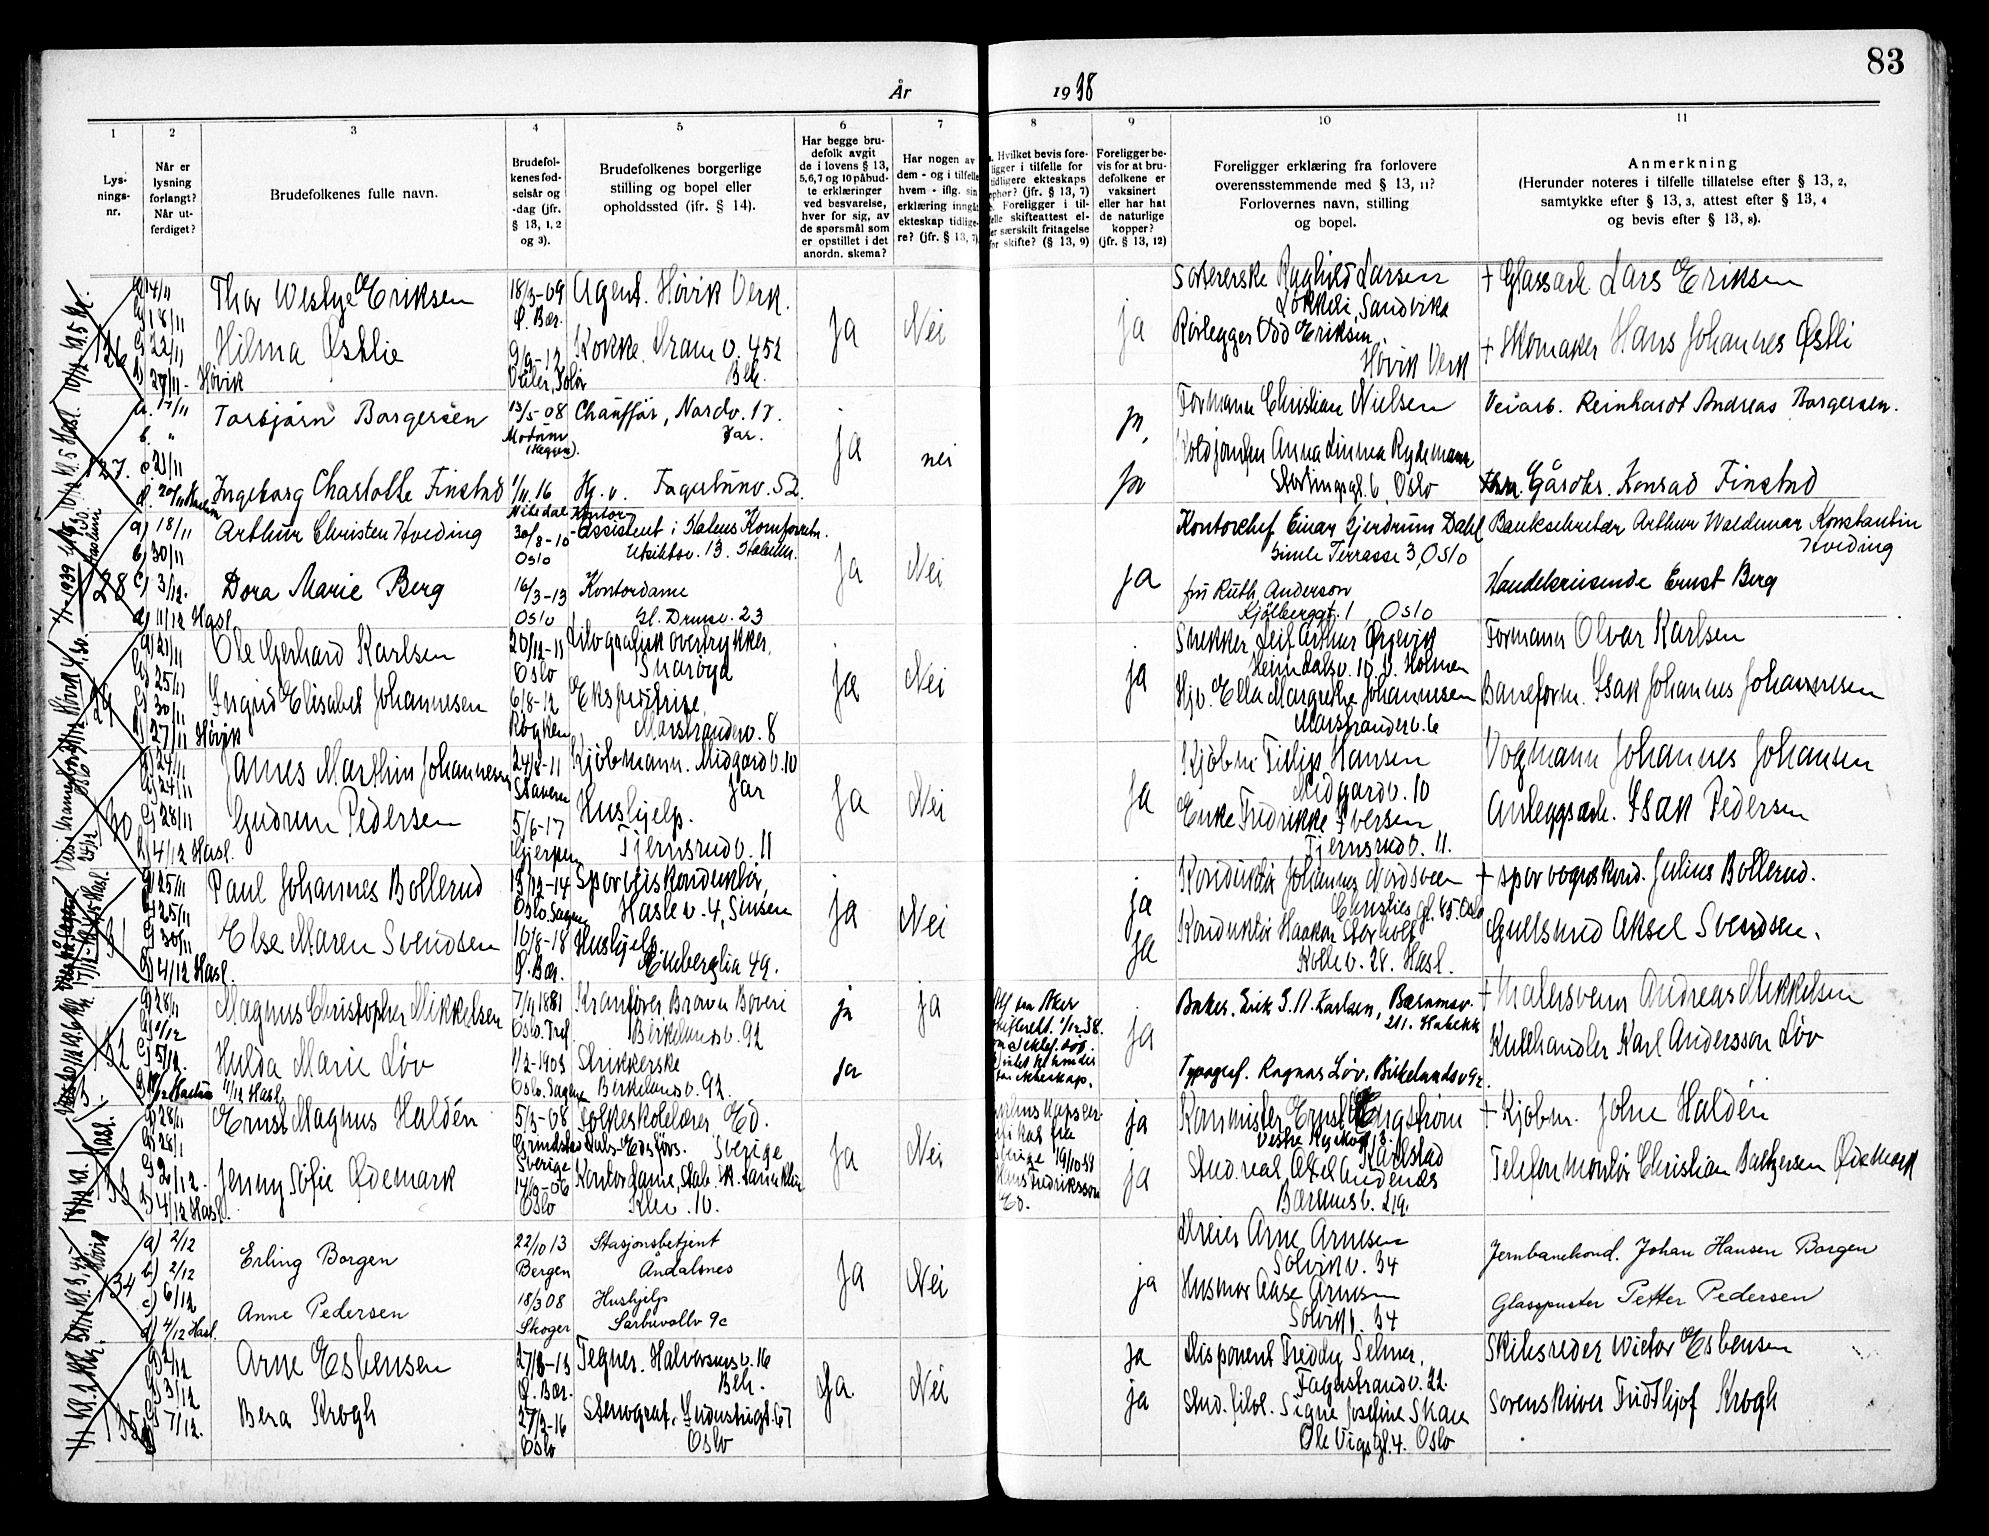 83
År 1938
1
Lys-
nings-
nr.
2
Når er
lysning
forlangt?
Når ut-
ferdiget?
3
Brudefolkenes fulle navn.
4
Brudefol-
kenes fød-
selsår og
-dag (jfr.
§ 13, 1, 2
og 3).
5
Brudefolkenes borgerlige
stilling og bopel eller
opholdssted (ifr. § 14).
6
Har begge bru-
defolk avgit
de i lovens § 13,
5, 6, 7 og 10 påbud-
te erklæringer
ved besvarelse,
hver for sig, av
de spørsmål som
er opstillet i det
anordn. skema?
7
Har nogen av
dem - og i tilfelle
hvem - iflg. sin
erklæring inngåt
ekteskap tidlige-
re? (jfr. § 13, 7)
8
Hvilket bevis fore-
ligger i tilfelle for
tidligere ekteskaps
ophør? (jfr. § 13, 7)
Foreligger i til-
felle skifteattest el-
ler særskilt fritagelse
for skifte? (§ 13, 9)
9
Foreligger be-
vis for at bru-
defolkene er
vaksinert
eller har hat
de naturlige
kopper?
(jfr. § 13, 12)
10
Foreligger erklæring fra forlovere
overensstemmende med § 13, 11?
Forlovernes navn, stilling
og bopel.
11
Anmerkning
(Herunder noteres i tilfelle tillatelse efter § 13, 2,
samtykke efter § 13, 3, attest efter § 13, 4
og bevis efter § 13, 8).
126
a) 14/11
b) 18/11
c) 22/11
d) 27/11 - Høvik
Thor Westye Eriksen
18/3-09
Ø. Bær.
Agent. Høvik Verk.
Hilma Østlie
9/9-12
Våler, Solør
Kokke. Dram.v. 452
Blk.
Ja
Nei
ja
Sorterske Ragnhild Larsen
Løkkeli, Sandvika
Rørlegger Odd Eriksen
Høvik Verk
+ Glassarb. Lars Eriksen
+ Skomaker Hans Johannes Østli
127.
a. 17/11
b. "
c. 21/11
Torbjørn Borgersen
13/5-08
Modum
Chauffør, Nordv. 17.
Jar.
Ingeborg Charlotte Finstad
1/11.16
Nitedal
Hj. v. Fagertunv. 52
ja
nei
ja
ja
Formann Christian Nielsen
Anna Linnea Rydemann
Stortingsgt. 6, Oslo
Veiarb. Reinhardt Andreas Borgersen.
Gårdbr. Konrad Finstad
128
a) 18/11
b) 30/11
c) 3/12.
d) 11/12 Hasl.
Arthur Christen Hveding
30/8-10
Oslo
Kontor-
assistent i Statens Kornforretn.
Utsiktsv. 13. Stabekk.
Dora Marie Berg
16/3-13
Oslo
Kontordame
Gl. Dramsv. 23
Ja
Nei
ja
Kontorchef Einar Gjerdrum Dahl
Simle Terrasse 3, Oslo
fru Ruth Anderson
Kjølberggt. 1, Oslo
Banksekretær Arthur Waldemar Konstantin
Hveding
Handelsreisende Ernst Berg
129
a) 21/11
b) 25/11
c) 30/11
d) 27/11 Høvik
Ole Gerhard Karlsen
20/12-11
Oslo
Litografisk overtrykker,
Snarøya
Ingrid Elisabet Johannesen
6/8-12
Røyken
Ekspeditrise,
Marstranderv. 8
ja
Nei
ja
Snekker Leif Arthur Ørjevik
Heimdalsv. 10 V. Holmen
Hjv. Ella Margrethe Johannesen
Marstranderv. 6
Formann Olvar Karlsen
Baneform. Isak Johannes Johannesen
130
a) 24/11
b) 24/11
c) 28/11
d) 4/12 Hasl.
James Marthin Johannesen
24/8-11
Stavern
Kjøbmann. Midgardv. 10
Jar
Gudrun Pedersen
5/6-17
Gjerpen
Hushjelp.
Tjernsrudv. 11
Ja
Nei
ja
Kjøbm. Hansen
Midgardv. 10
Enke Fredrikke Iversen
Tjernsrudv. 11.
Vogmann Johannes Johansen
Anleggsarb. Isak Pedersen
131
a) 25/11
b) 25/11
c) 30/11
d) 4/12 Hasl.
Paul Johannes Bollerud
13/12-14
Oslo. Sagene
Sporveiskonduktør,
Haslev. 4, Sinsen
Else Maren Svendsen
10/8-18
Ø. Bær.
Hushjelp
49.
ja
Nei
ja
ja
Konduktør Johannes Nordsveen
Christies gt. 85 Oslo
Konduktør Haakon Storholt
Kollev. 28. Hasl.
+ sporvognskond. Julius Bollerud.
Gullsmed Aksel Svendsen.
132
a) 28/11
b) 1/12
c) 5/12.
11/12 Hasl.
Magnus Christopher Mikkelsen
7/11 1881
Oslo. Tref.
Kranfører Brown Boveri
Birkelundsv. 92
Hulda Marie Løv
1/2-1903
Oslo. Sagene
Strikkerske
Birkelundsv. 92.
ja
ja
ja
ja
Baker. Erik G. A. Karlsen, Bærumsv.
211. Habekk
Typograf. Ragnar Løv, Birkelundsv 92.
+ Malersvenn Andreas Mikkelsen
Kullhandler Karl Andersson Løv
133
a) 28/11
b) 28/11
c) 2/12.
d) 4/12 Hasl.
Ernst Magnus Haldén
5/3-08
Sverige
Folkeskolelærer Ed.
Dals-Ed. Sverige
Jenny Sofie Ødemark
14/9-06
Oslo
Kontordame,
Klev. 10.
ja
Nei
19/10-38
Fredriksson
Ed.
ja
ja
Kanmister Ernst Engstrøm
Karlstad
Stud. real Aksel Andenæs
Bærumsv. 219.
+ Kjøbm. John Haldén
Telefonmontør Christian Baltzersen Ødemark
134
a) 2/12
b) 2/12
c) 6/12
d) 4/12 Hasl.
Erling Borgen
22/10 13
Bergen
Stasjonsbetjent
Åndalsnes
Anne Pedersen
18/3 08
Skoger
Hushjelp
Sarbuvollv 9c
Ja
Nei
ja
Dreier Arne Arnesen
Solvikv. 34
Husmor Aase Arnesen
Solvikv. 34
Jernbanekond. Johan Hansen Borgen
Glasspuster Petter Pedersen
135
a) 2/12
b) 3/12
c) 7/12.
Arne Esbensen
27/8-13
Ø. Bær.
Tegner. Halvorsensv. 16
Blk.
Bera Krogh
27/2-16
Oslo
Stenograf. Industrigt. 67
Oslo
Ja.
Nei
ja
ja
Disponent Freddy Selmer,
Fagerstrandv. 22.
Stud. filol. Signe Josefine Skau
Ole Vigs gt. 4. Oslo
Skibsreder Wictor Esbensen
Sorenskriver Fridthjof Krogh